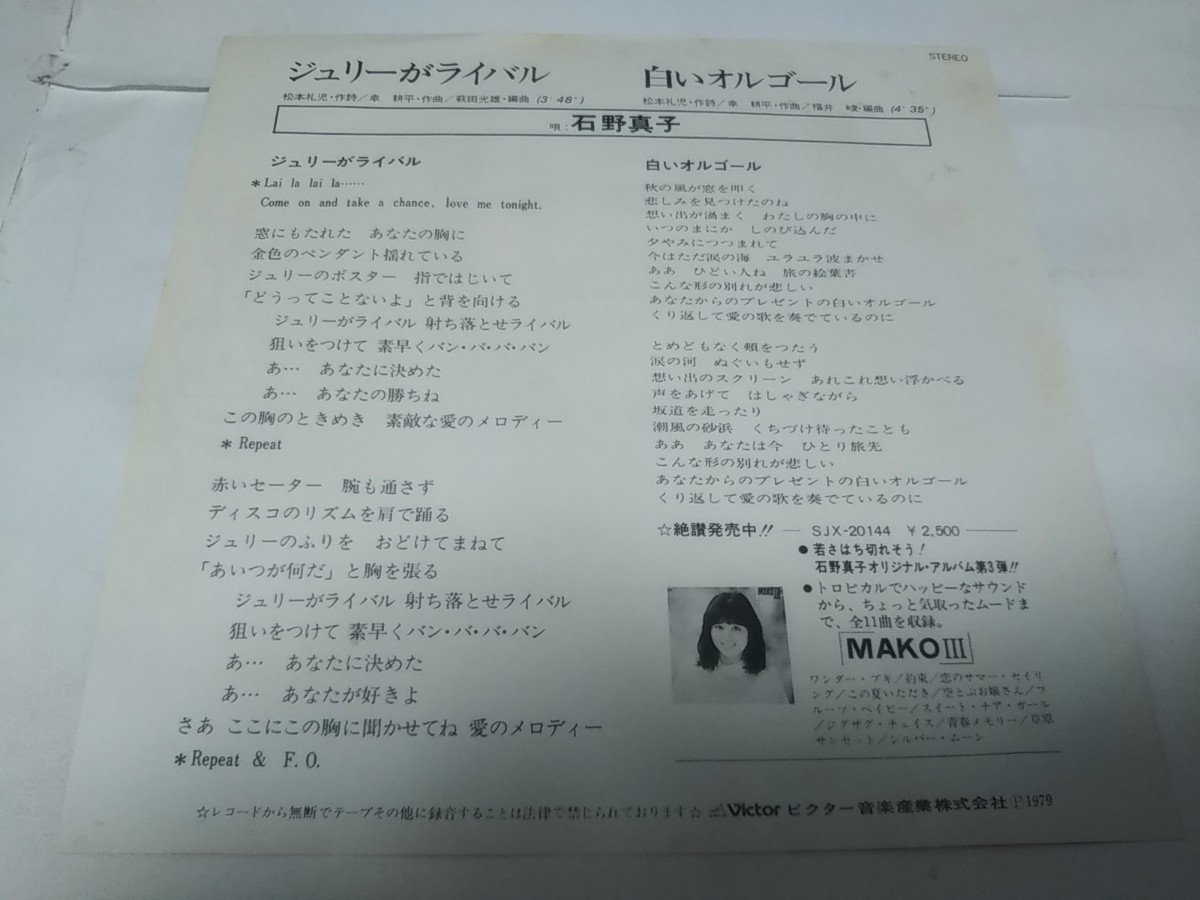 STEREO
ジュリーがライバル
松本礼児・作詩/幸 耕平・作曲/萩田光雄・編曲 (3'48")
白いオルゴール
松本礼児・作詩/幸 耕平・作曲/福井 峻・編曲 (4'35")
唄:石野真子
ジュリーがライバル
*Lai la lai la……
Come on and take a chance, love me tonight.
窓にもたれた あなたの胸に
金色のペンダント揺れている
ジュリーのポスター 指ではじいて
「どうってことないよ」と背を向ける
ジュリーがライバル 射ち落とせライバル
狙いをつけて 素早くバン・バ・バ・バン
あ… あなたに決めた
あ… あなたの勝ちね
この胸のときめき 素敵な愛のメロディー
*Repeat
赤いセーター 腕も通さず
ディスコのリズムを肩で踊る
ジュリーのふりを おどけてまねて
「あいつが何だ」と胸を張る
ジュリーがライバル 射ち落とせライバル
狙いをつけて 素早くバン・バ・バ・バン
あ… あなたに決めた
あ… あなたが好きよ
さあ ここにこの胸に聞かせてね 愛のメロディー
*Repeat & F.O.
白いオルゴール
秋の風が窓を叩く
悲しみを見つけたのね
想い出が渦まく わたしの胸の中に
いつのまにか しのび込んだ
夕やみにつつまれて
今はただ涙の海 ユラユラ波まかせ
ああ ひどい人ね 旅の絵葉書
こんな形の別れが悲しい
あなたからのプレゼントの白いオルゴール
くり返して愛の歌を奏でているのに
とめどもなく頬をつたう
涙の河 ぬぐいもせず
想い出のスクリーン あれこれ想い浮かべる
声をあげて はしゃぎながら
坂道を走ったり
潮風の砂浜 くちづけ待ったことも
ああ あなたは今 ひとり旅先
こんな形の別れが悲しい
あなたからのプレゼントの白いオルゴール
くり返して愛の歌を奏でているのに
☆絶讃発売中!! — SJX-20144 ¥2,500 —
●若さはち切れそう!
石野真子オリジナル・アルバム第3弾!!
●トロピカルでハッピーなサウンド
から、ちょっと気取ったムードま
で、全11曲を収録。
MAKO III
MAKO III
ワンダー・ブギ/約束/恋のサマー・セイリ
ング/この夏いただき/空とぶお嬢さん/フ
ルーツ・ベイビー/スイート・チア・ガール
/ジグザグ・チェイス/青春メモリー/草原
サンセット/シルバー・ムーン
☆レコードから無断でテープその他に録音することは法律で禁じられております☆ Victor ビクター音楽産業株式会社 Ⓟ1979